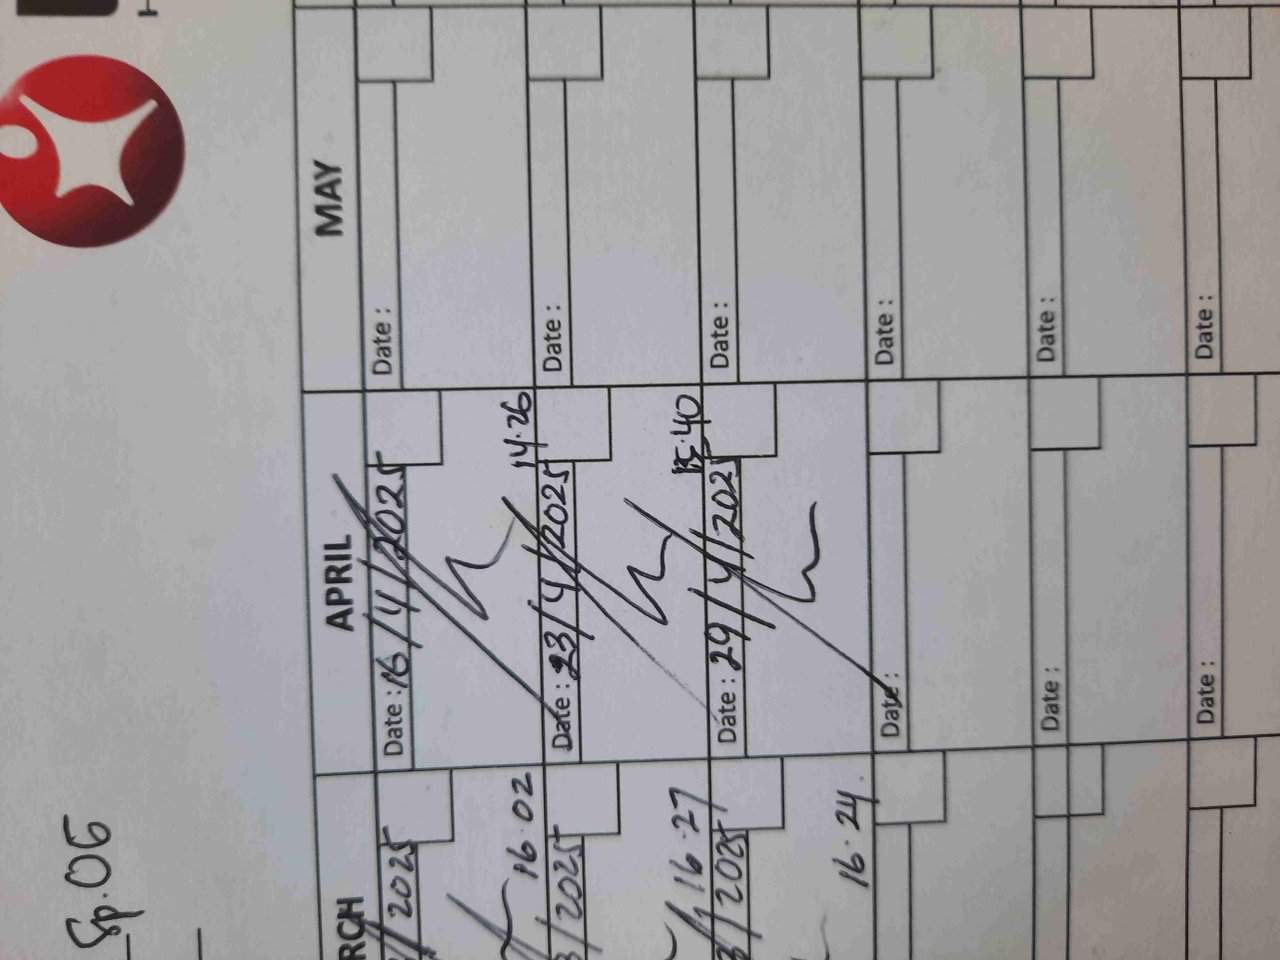 Sp.05
RCH APRIL MAY
/2025 Date : 16/4/2025 Date :
16.02 14.26
3/2025 Date : 23/4/2025 Date :
16.27 15.40
3/2025 Date : 29/4/2025 Date :
16.24
Date : Date :
Date : Date :
Date : Date :